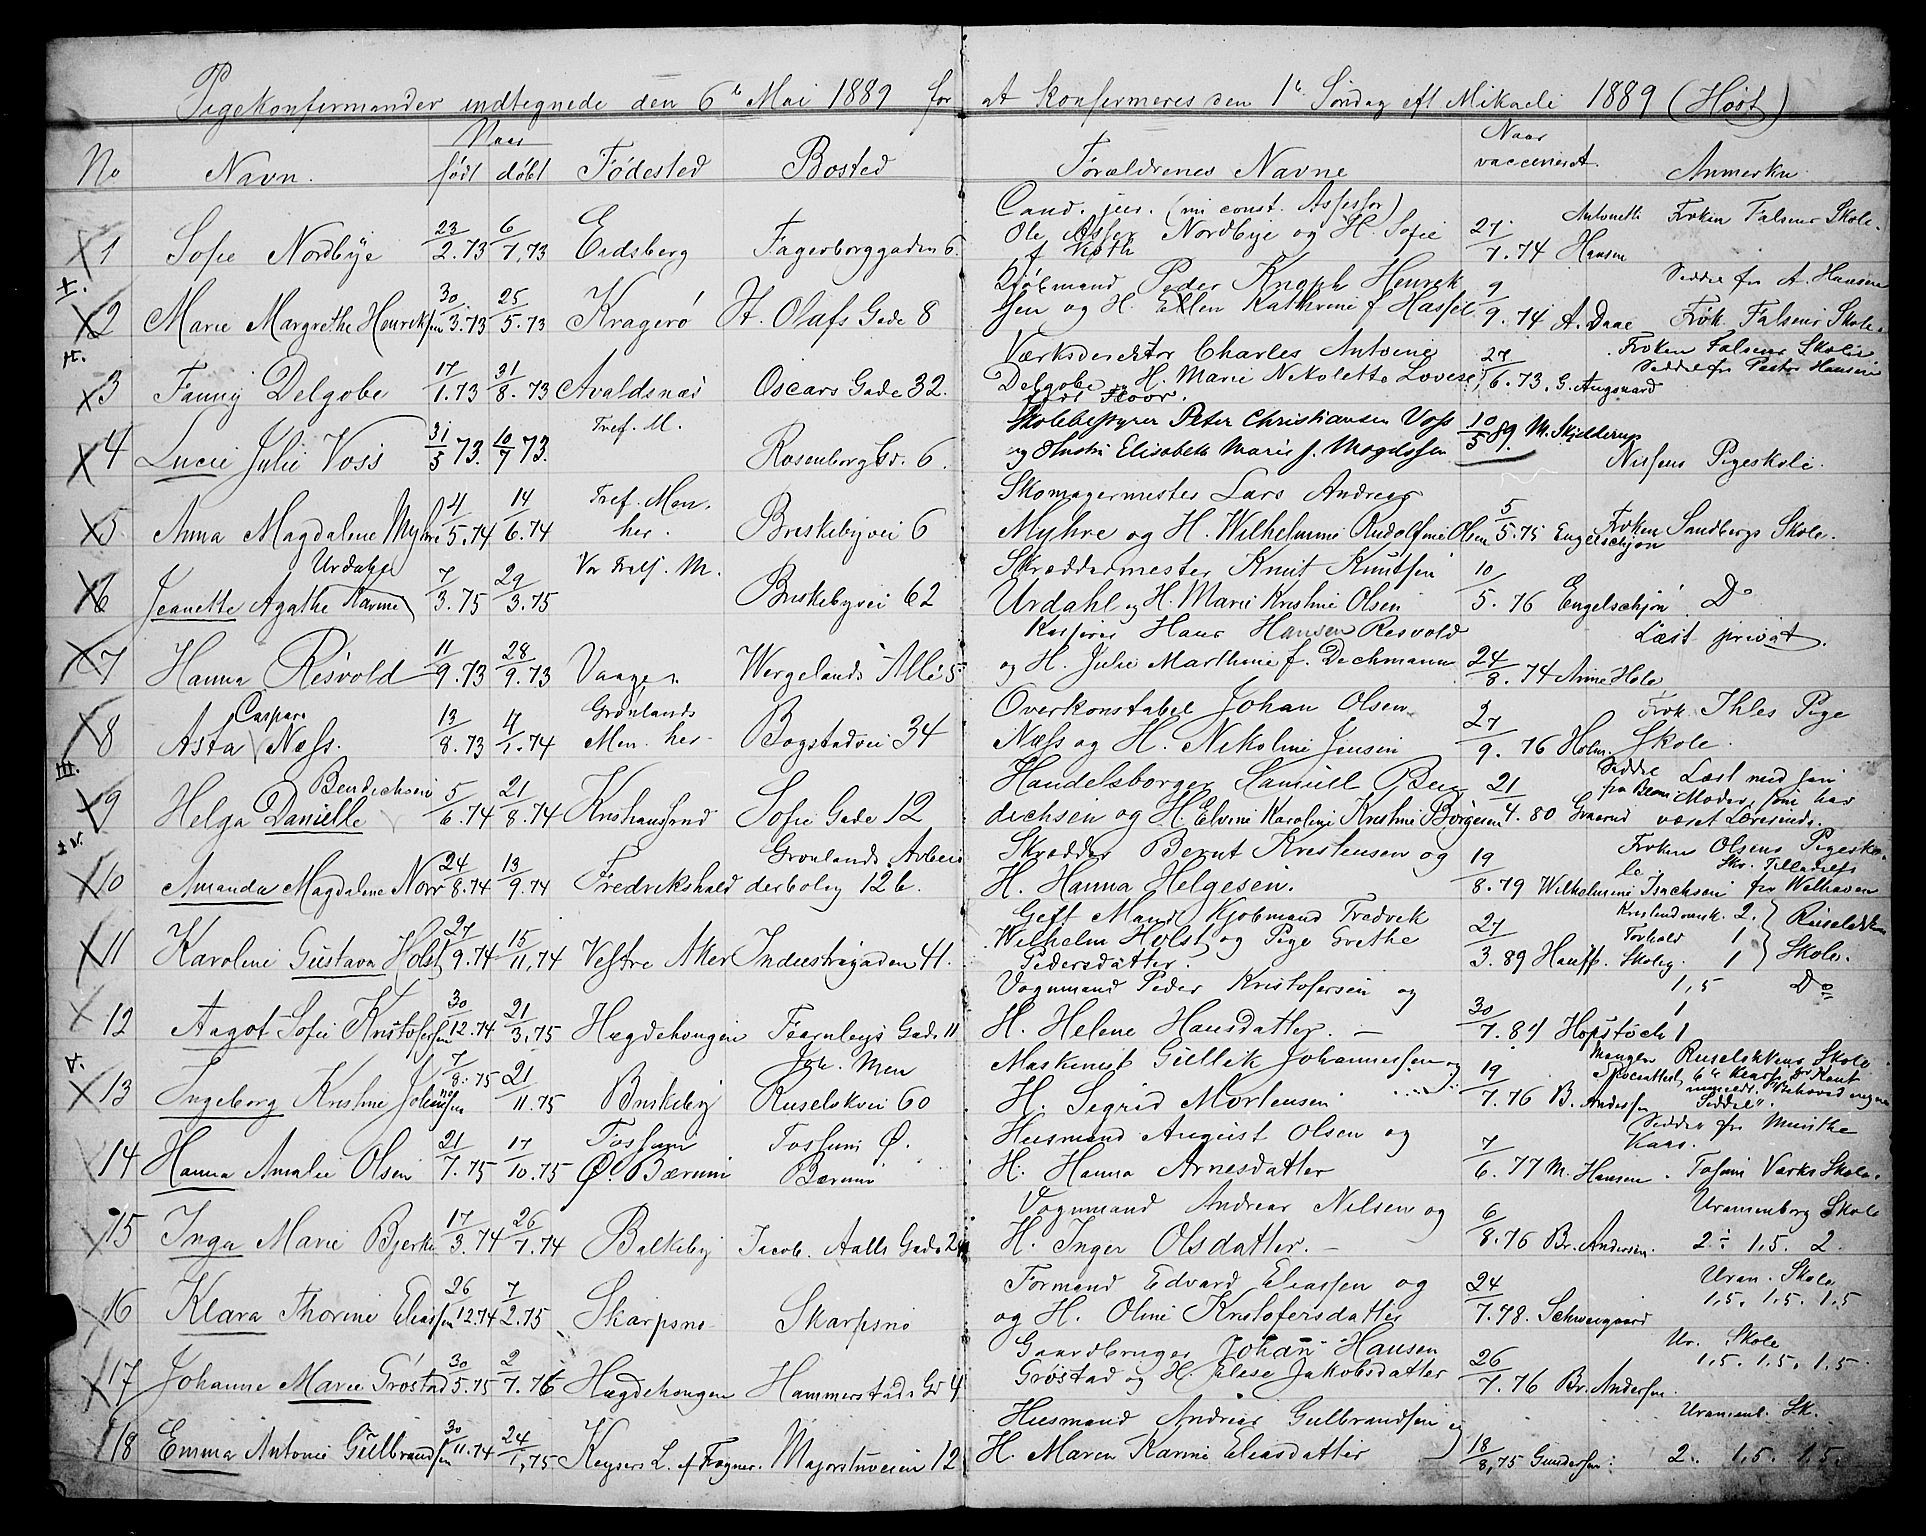 Pigekonfirmander indtegnede den 6te Mai 1889 for at konfirmeres den 1te Søndag eft Mikaeli 1889 (Høst)
No Navn. Naar født døbt Fødested Bosted Forældrenes Navne Naar vaccineret. Anmerkn.
Cand. jur. (nu const. Assessor)
1 Sofie Nordbye 23/2.73 6/7.73 Eidsberg Fagerborggaden 6. Ole Asser Nordbye og H. Sofie f. Koth 27/7.74 Antonette Hansen Frøken Falsens Skole.
X.
2 Marie Margrethe Henriksen 30/3.73 25/5.73 Kragerø St. Olafs Gade 8 Kjøbmand Peder Knoph Henriksen og H. Ellen Kathrine f Hassel 9/9.74 A. Daae Seddel fra A. Hansen Frøk. Falsens Skole.
3 Fanny Delgobe 17/1.73 31/8.73 Avaldsnæs Oscars Gade 32. Værksdirektør Charles Antoine Delgobe og H. Marie Nikolette Lovise født Floor. 27/6.73. G. Augsaard Frøken Falsens Skole Seddel fra Pastor Hansen
4 Lucie Julie Voss 31/5 73. 10/7 73. Tref. M. Rosenborg Gd. 6. Skolebestyrer Peter Christiansen Voss og Hustru Elisabeth Marie f. Magdssen 10/5 89. M. Skjelderup Nissens Pigeskole.
5. Anna Magdalene Myhre 4/5.74 14/6.74 Tref. Men. her. Breskebyvei 6 Skomagermester Lars Andreas Myhre og H. Wilhelmine Rudolfine Olsen 5/5.75 Engelschjøn Frøken Sandbergs Skole.
6 Jeanette Agathe Karine Urdahl 7/3.75 29/3.75 Vor Frels. M. Briskebyvei 62 Skræddermester Knut Knutsen Urdahl og H. Marie Kristine Olsen 10/5.76 Engelschjøn D°
7 Hanna Resvold 11/9.73 28/9.73 Vaage. Wergelands Allé 5 Kasserer Hans Hansen Resvold og H. Julie Marthine f. Dechmann 24/8.74 Anne Hole Læst privat.
8 Asta Caspara Næss. 13/8.73 4/1.74 Grønlands Men. her. Bogstadvei 34 Overkonstabel Johan Olsen Næss og H. Nikoline Jensen 27/9.76 Holm. Frøk. Ihles Pige Skole.
III.
9 Helga Danielle Bendichsen 5/6.74 21/8.74 Kristiansund Sofie Gade 12 Handelsborger Samuel Bendichsen og H. Elvine Karoline Kristine Børgesen 21/4.80 Graarud Seddel fra Læst med sin Moder, som har været Lærerinde.
IV.
10 Amanda Magdalene Norr 24/8.74 13/9.74 Fredrikshald Grønlands Arbeiderbolig 12 b. Skrædder Bernt Kristensen og H. Hanna Helgesen. 19/8.79 Wilhelmine Isachsen Frøken Olsens Pigeskole Skr. Tilladelse fra Welhaven
11 Karoline Gustava Holst 27/9.74 15/11.74 Vestre Aker Industrigaden 41. Gift Mand Kjøbmand Fredrik Wilhelm Holst og Pige Grethe Pedersdatter. 27/3.89 Hauff. Kristendomsk. 2. Forhold 1 Skoleg. 1 Ruseløkken Skole.
12 Aagot Sofie Kristofersen 30/12.74 21/3.75 Hægdehougen Fearnleys Gade 11 Vognmand Peder Kristofersen og H. Helene Hansdatter. — 30/7.84 Hopstock 1,5 1 1 D°
V.
13 Ingeborg Kristine Johannesen 7/8.75 21/11.75 Briskeby Joh. Men Ruseløkvei 60 Maskinist Gullik Johannessen og H. Sigrid Mortensen 19/7.76 B. Andersen Mangler Ruseløkkens Skole
14 Hanna Amalie Olsen 21/7.75 17/10.75 Fossum Ø. Bærum Fossum Ø. Bærum Husmand August Olsen og H. Hanna Arnesdatter 7/6.77 M. Hansen. Seddel fra Munthe Kaas. Fossum Værks Skole.
15 Inga Marie Bjerke 17/3.74 26/7.74 Balkeby Jacob. Aalls Gade 2 Vognmand Andreas Nilsen og H. Inger Olsdatter. — 6/8.76 Br. Andersen. Uranienborg Skole 2÷ 1,5. 2.
16 Klara Thorine Eliassen 26/12.74 7/2.75 Skarpsno Skarpsno Formand Edvard Eliassen og og H. Oline Kristofersdatter 24/7.78. Schweigaard Uran. Skole 1,5. 1,5. 1,5
17 Johanne Marie Grøstad 30/5.75 2/7.76 Hægdehougen Hammerstads Gd 4 Gaardbruger Johan Hansen Grøstad og H. Elise Jakobsdatter 26/7.76 Br. Andersen. Ur. Skole 1,5. 1,5. 1,5.
18 Emma Antonie Gulbrandsen 30/11.74 24/1.75 Keysers L. af Frogner. Majorstuveien 12 Husmand Andreas Gulbrandsen og H. Maren Karine Eliasdatter 18/8,75 Gundersen. Uranienb. Sk. 2. 1,5. 1,5.